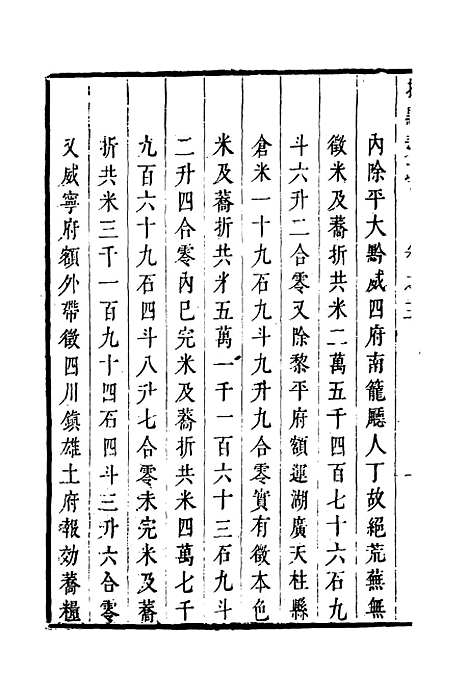 內除平大黔威四府南籠廳人丁故絕荒蕪無
徵米及蕎折共米二萬五千四百七十六石九
斗六升二合零又除黎平府額運湖廣天柱縣
倉米一十九石九斗九升九合零實有徵本色
米及蕎折共米五萬一千一百六十三石九斗
二升四合零內已完米及蕎折共米四萬七千
九百六十九石四斗八升七合零未完米及蕎
折共米三千一百九十四石四斗三升六合零
又威寧府額外帶徵四川鎮雄土府報効蕎糧